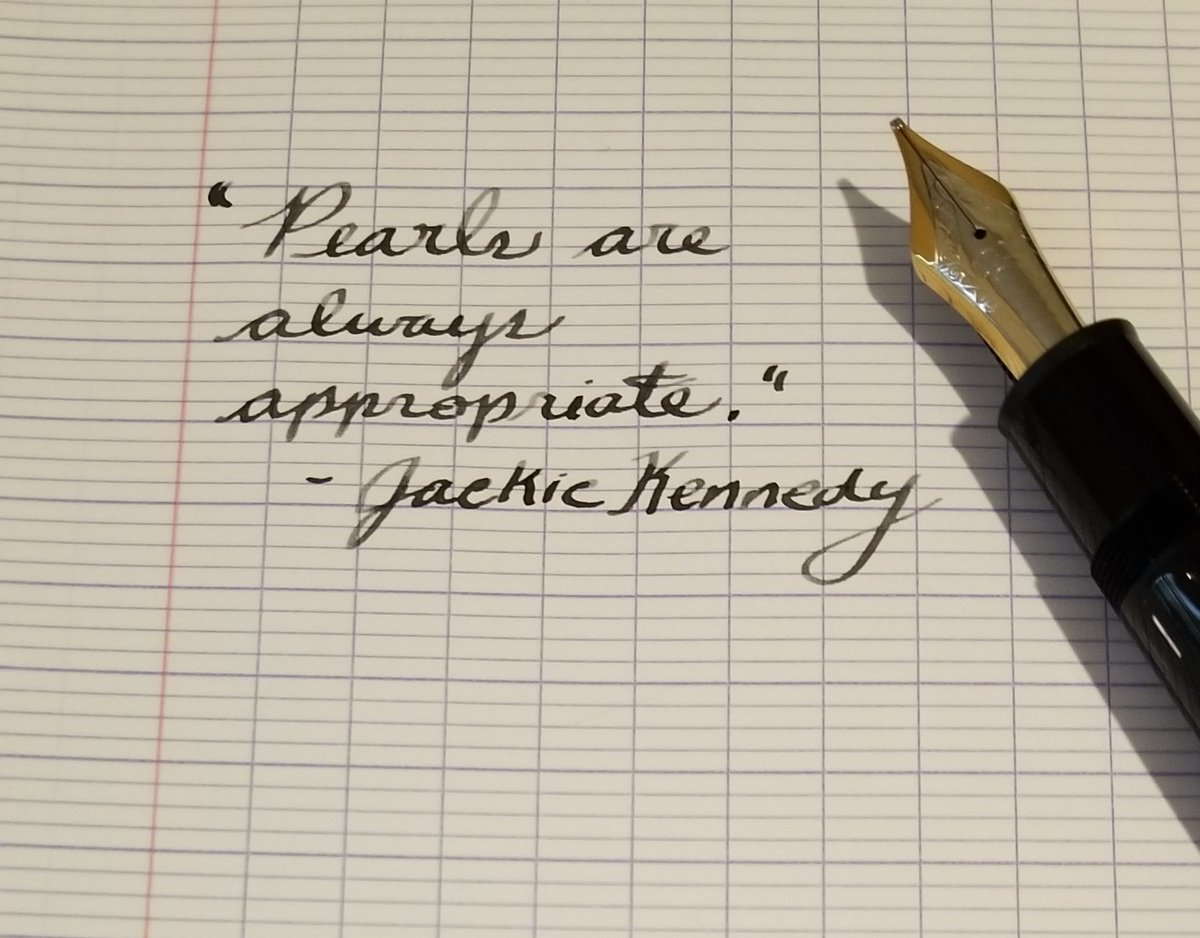 "Pearls are
always
appropriate."
- Jackie Kennedy